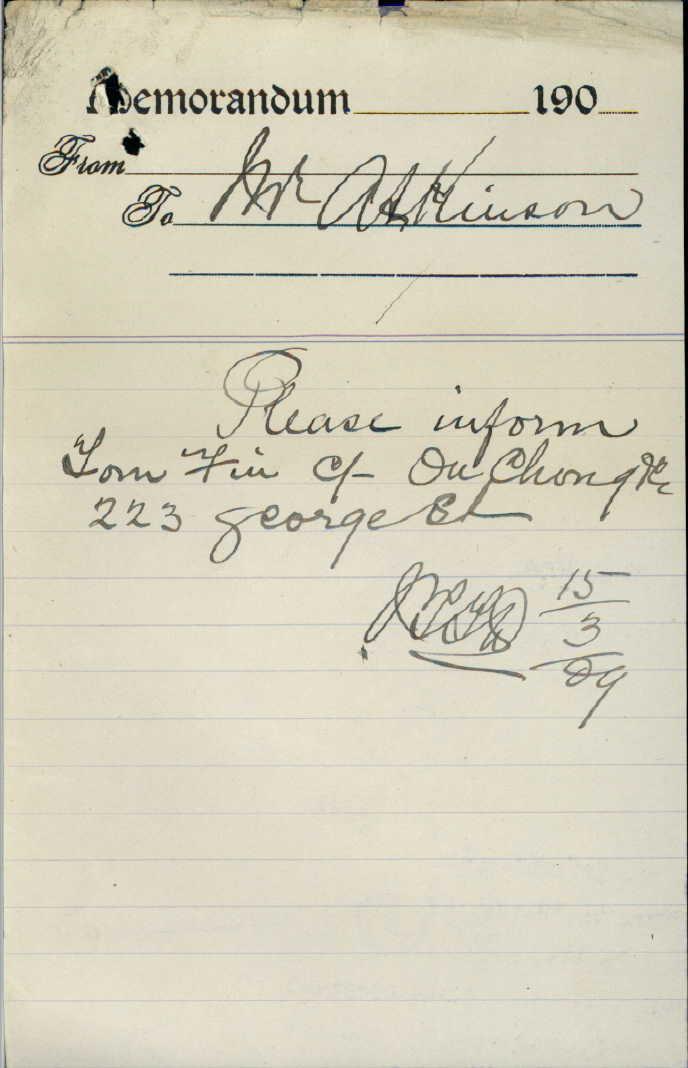 Memorandum 190
From
To Mr Atkinson
Please inform
Tom Fin c/- On Chong &
223 George St
15
3
09